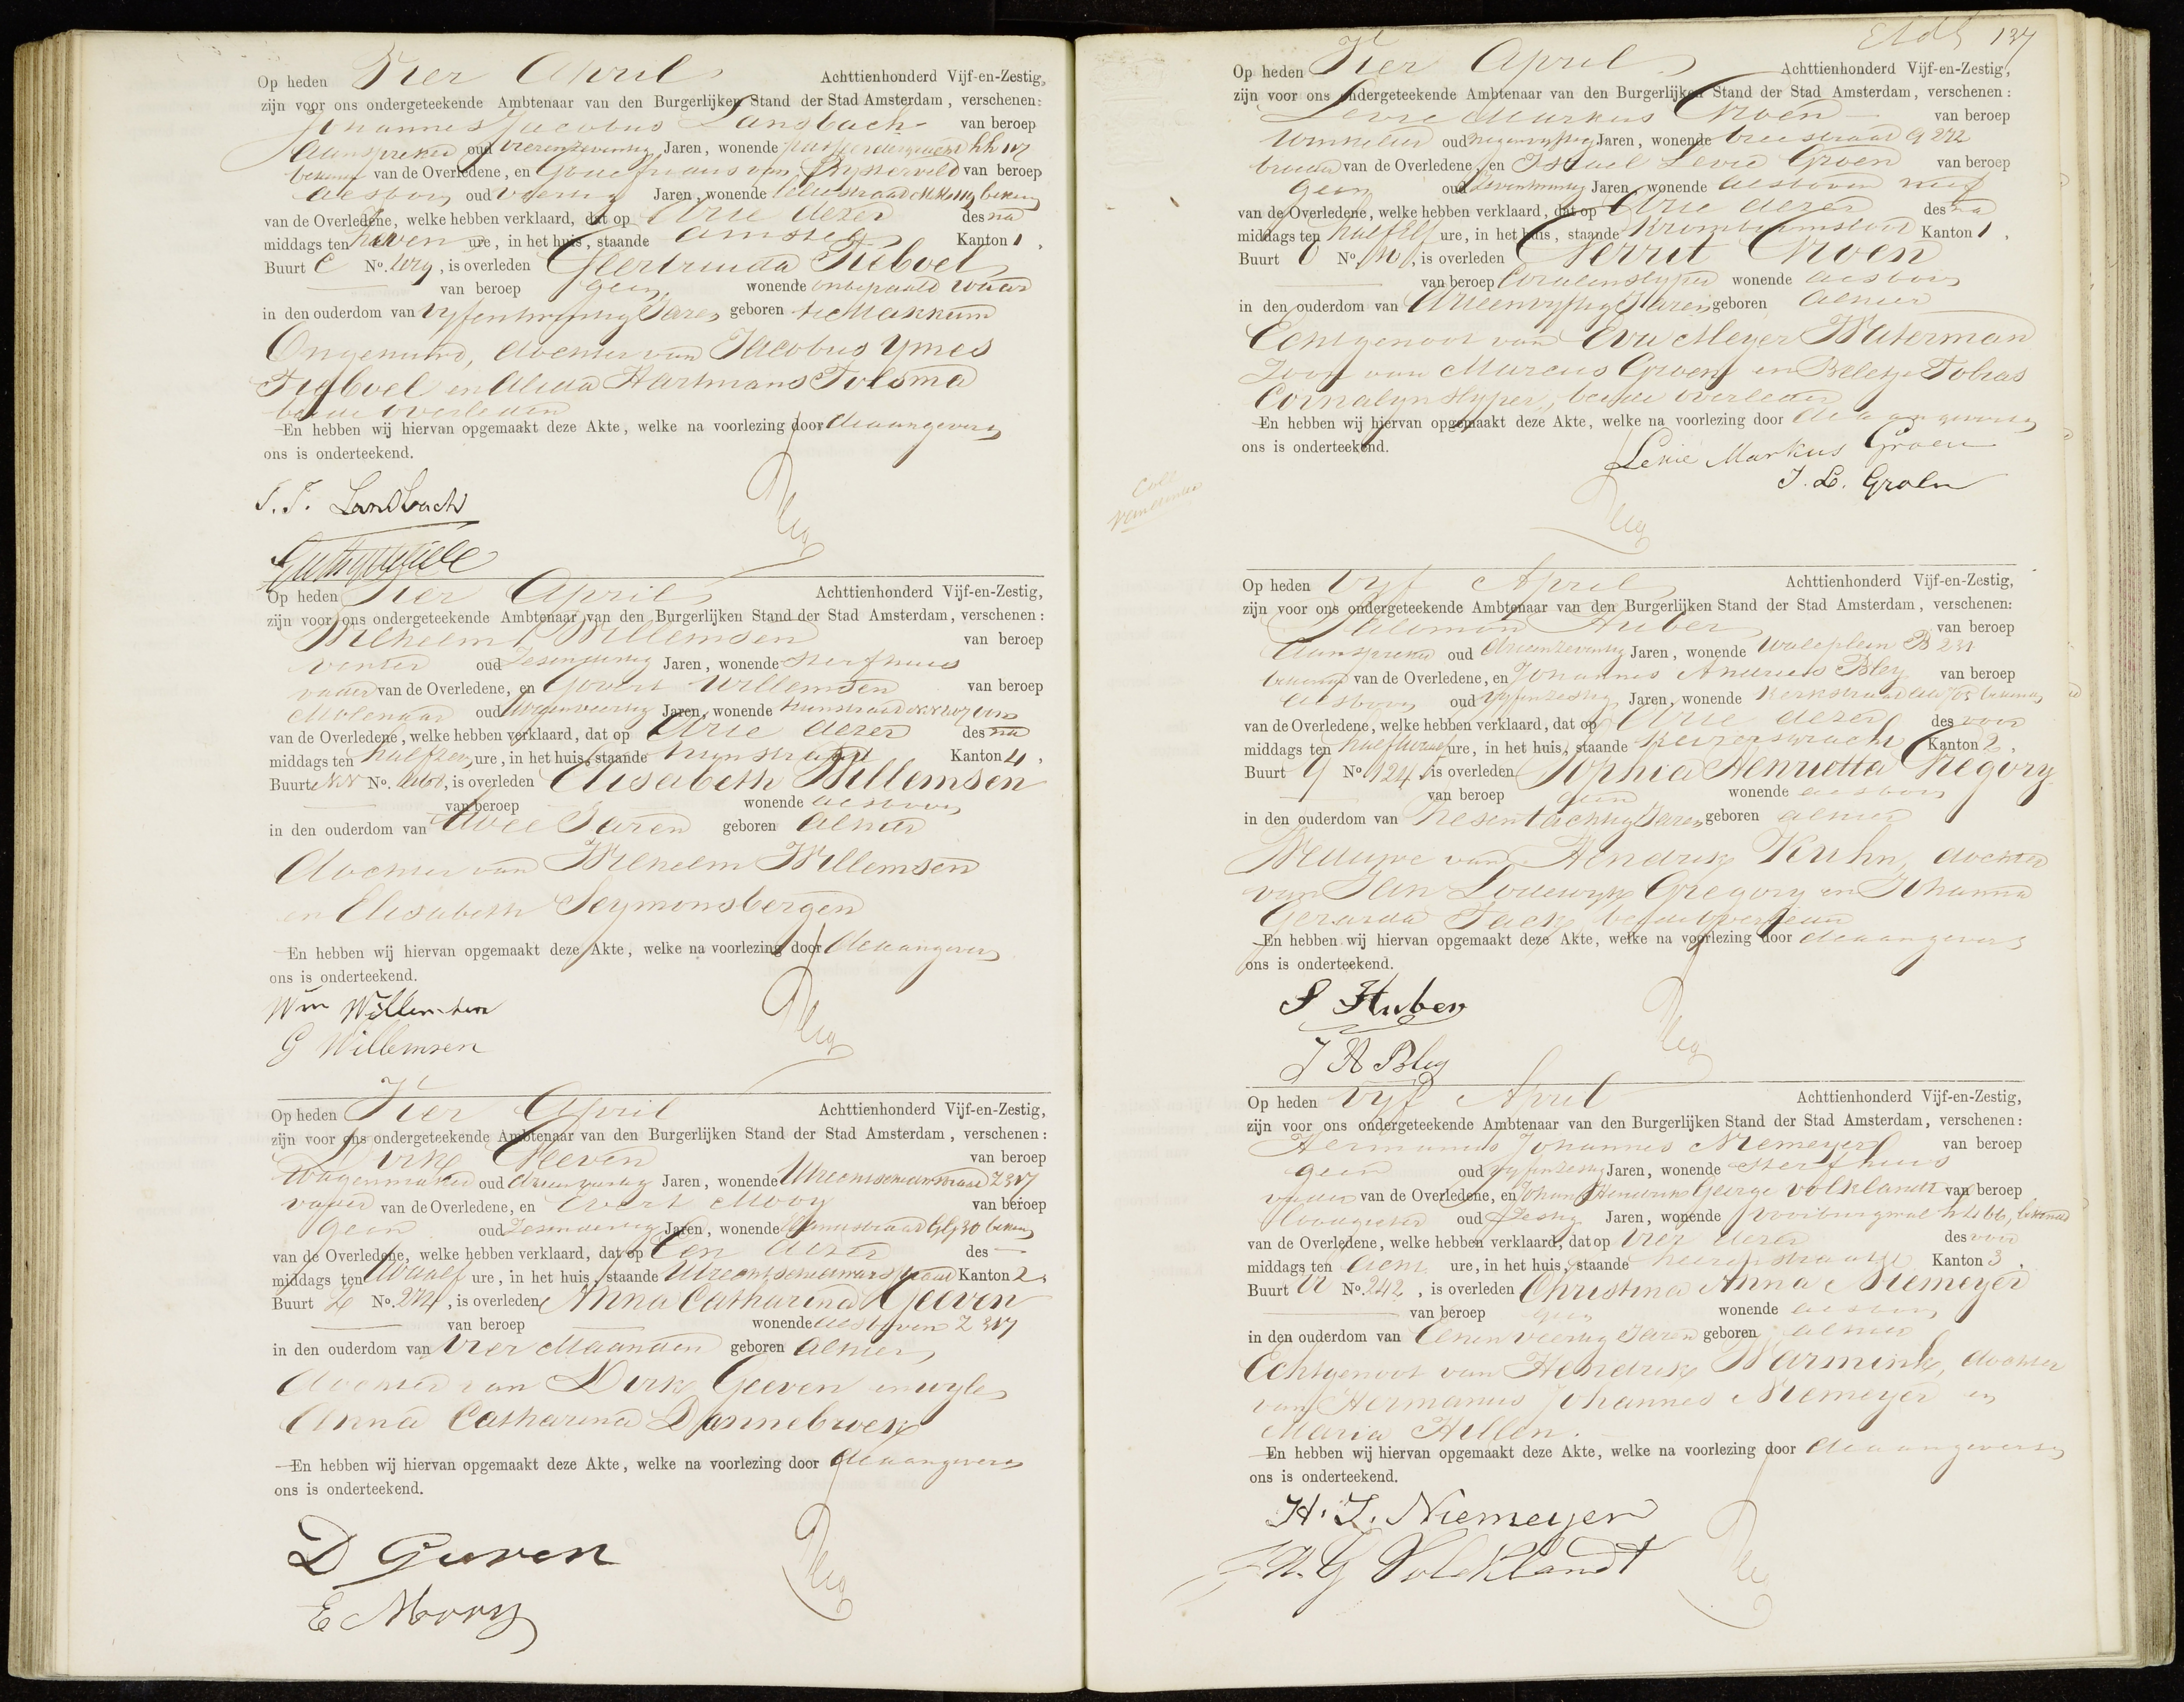 Op heden Vier April Achttienhonderd Vijf-en-Zestig,
zijn voor ons ondergeteekende Ambtenaar van den Burgerlijken Stand der Stad Amsterdam, verschenen:
Johannes Jacobus Lansbach van beroep
Aanspreker oud Jaren, wonende
van de Overledene, en van beroep
als boven oud Veertig Jaren, wonende
van de Overledene, welke hebben verklaard, dat op Drie dezer des na
middags ten Zeven ure, in het huis, staande Amstel Kanton 1,
Buurt C No. , is overleden Geertruida Tuboel
van beroep geen wonende onbepaald waar
in den ouderdom van Vyfentwintig Jaren geboren te Makkum
Ongehuwd, dochter van Jacobus Ymes
Tuboel en Alida Hartmans Tolsma
beide overleden
En hebben wij hiervan opgemaakt deze Akte, welke na voorlezing door de aangevers
ons is onderteekend.
J. J. Lansbach
Op heden Vier April Achttienhonderd Vijf-en-Zestig,
zijn voor ons ondergeteekende Ambtenaar van den Burgerlijken Stand der Stad Amsterdam, verschenen:
Wilhelm Willemsen van beroep
oud Zesendertig Jaren, wonende Sterfhuis
vader van de Overledene, en Govert Willemsen van beroep
Molenaar oud Jaren, wonende
van de Overledene, welke hebben verklaard, dat op Drie dezer des na
middags ten half zes ure, in het huis, staande Kanton 4,
Buurt NN No. , is overleden Elisabeth Willemsen
van beroep wonende als boven
in den ouderdom van Twee Jaren geboren alhier
dochter van Wilhelm Willemsen
en Elisabeth Seymonsbergen
En hebben wij hiervan opgemaakt deze Akte, welke na voorlezing door de aangevers
ons is onderteekend.
Wm Willemsen
G Willemsen
Op heden Vier April Achttienhonderd Vijf-en-Zestig,
zijn voor ons ondergeteekende Ambtenaar van den Burgerlijken Stand der Stad Amsterdam, verschenen:
Dirk Geeven van beroep
Wagenmaker oud Jaren, wonende Utrechtschedwarsstraat Z 317
vader van de Overledene, en Evert Mooy van beroep
geen oud Zesendertig Jaren, wonende
van de Overledene, welke hebben verklaard, dat op Een dezer des
middags ten Twaalf ure, in het huis, staande Utrechtschedwarsstraat Kanton 2,
Buurt Z No. 274, is overleden Anna Catharina Geeven
van beroep wonende als boven Z 317
in den ouderdom van Vier Maanden geboren alhier
dochter van Dirk Geeven en wyle
Anna Catharina Dannebroek
En hebben wij hiervan opgemaakt deze Akte, welke na voorlezing door de aangevers
ons is onderteekend.
D Geeven
E Mooy
137
Op heden Vier April Achttienhonderd Vijf-en-Zestig,
zijn voor ons ondergeteekende Ambtenaar van den Burgerlijken Stand der Stad Amsterdam, verschenen:
Levie Markus Groen van beroep
Winkelier oud Jaren, wonende Breestraat Q 272
broeder van de Overledene, en Israel Levie Groen van beroep
geen oud Jaren, wonende als boven neef
van de Overledene, welke hebben verklaard, dat op Drie dezer des na
middags ten half Elf ure, in het huis, staande Kromboomsloot Kanton 1,
Buurt O No. , is overleden Gerrit Groen
van beroep Coralenslyper wonende als boven
in den ouderdom van Drieenvyftig Jaren geboren alhier
Echtgenoot van Eva Meyer Waterman
Zoon van Marcus Groen en Beletje Tobias
Cornalynslyper, beide overleden
En hebben wij hiervan opgemaakt deze Akte, welke na voorlezing door de aangevers
ons is onderteekend.
Levie Markus Groen
I. L. Groen
Op heden Vyf April Achttienhonderd Vijf-en-Zestig,
zijn voor ons ondergeteekende Ambtenaar van den Burgerlijken Stand der Stad Amsterdam, verschenen:
Salomon Huber van beroep
Aanspreker oud Drieenzeventig Jaren, wonende Waleplein B 231
bekende van de Overledene, en Johannes Andries Bley van beroep
als boven oud Vyfenzestig Jaren, wonende Kerkstraat
van de Overledene, welke hebben verklaard, dat op Drie dezer des voor
middags ten half twaalf ure, in het huis, staande Keizersgracht Kanton 2,
Buurt G No. 124, is overleden Sophia Henrietta Gregory
van beroep geen wonende als boven
in den ouderdom van Zesentachtig Jaren geboren alhier
Weduwe van Hendrik Kuhn, dochter
van Jan Lodewyk Gregory en Johanna
Gerarda Tack, beide overleden
En hebben wij hiervan opgemaakt deze Akte, welke na voorlezing door de aangevers
ons is onderteekend.
S Huber
J A Bley
Op heden Vyf April Achttienhonderd Vijf-en-Zestig,
zijn voor ons ondergeteekende Ambtenaar van den Burgerlijken Stand der Stad Amsterdam, verschenen:
Hermanus Johannes Niemeyer van beroep
geen oud Vyfenzestig Jaren, wonende Sterfhuis
vader van de Overledene, en Johan Hendrik George Volklandt van beroep
Loodgieter oud Zestig Jaren, wonende
van de Overledene, welke hebben verklaard, dat op Vier dezer des voor
middags ten Acht ure, in het huis, staande Heerenstraat Kanton 3,
Buurt No. 242, is overleden Christina Anna Niemeyer
van beroep geen wonende als boven
in den ouderdom van Eenenveertig Jaren geboren alhier
Echtgenoot van Hendrik Warmink, dochter
van Hermanus Johannes Niemeyer en
Maria Hillen.
En hebben wij hiervan opgemaakt deze Akte, welke na voorlezing door de aangevers
ons is onderteekend.
H. J. Niemeyer
J H G Volklandt